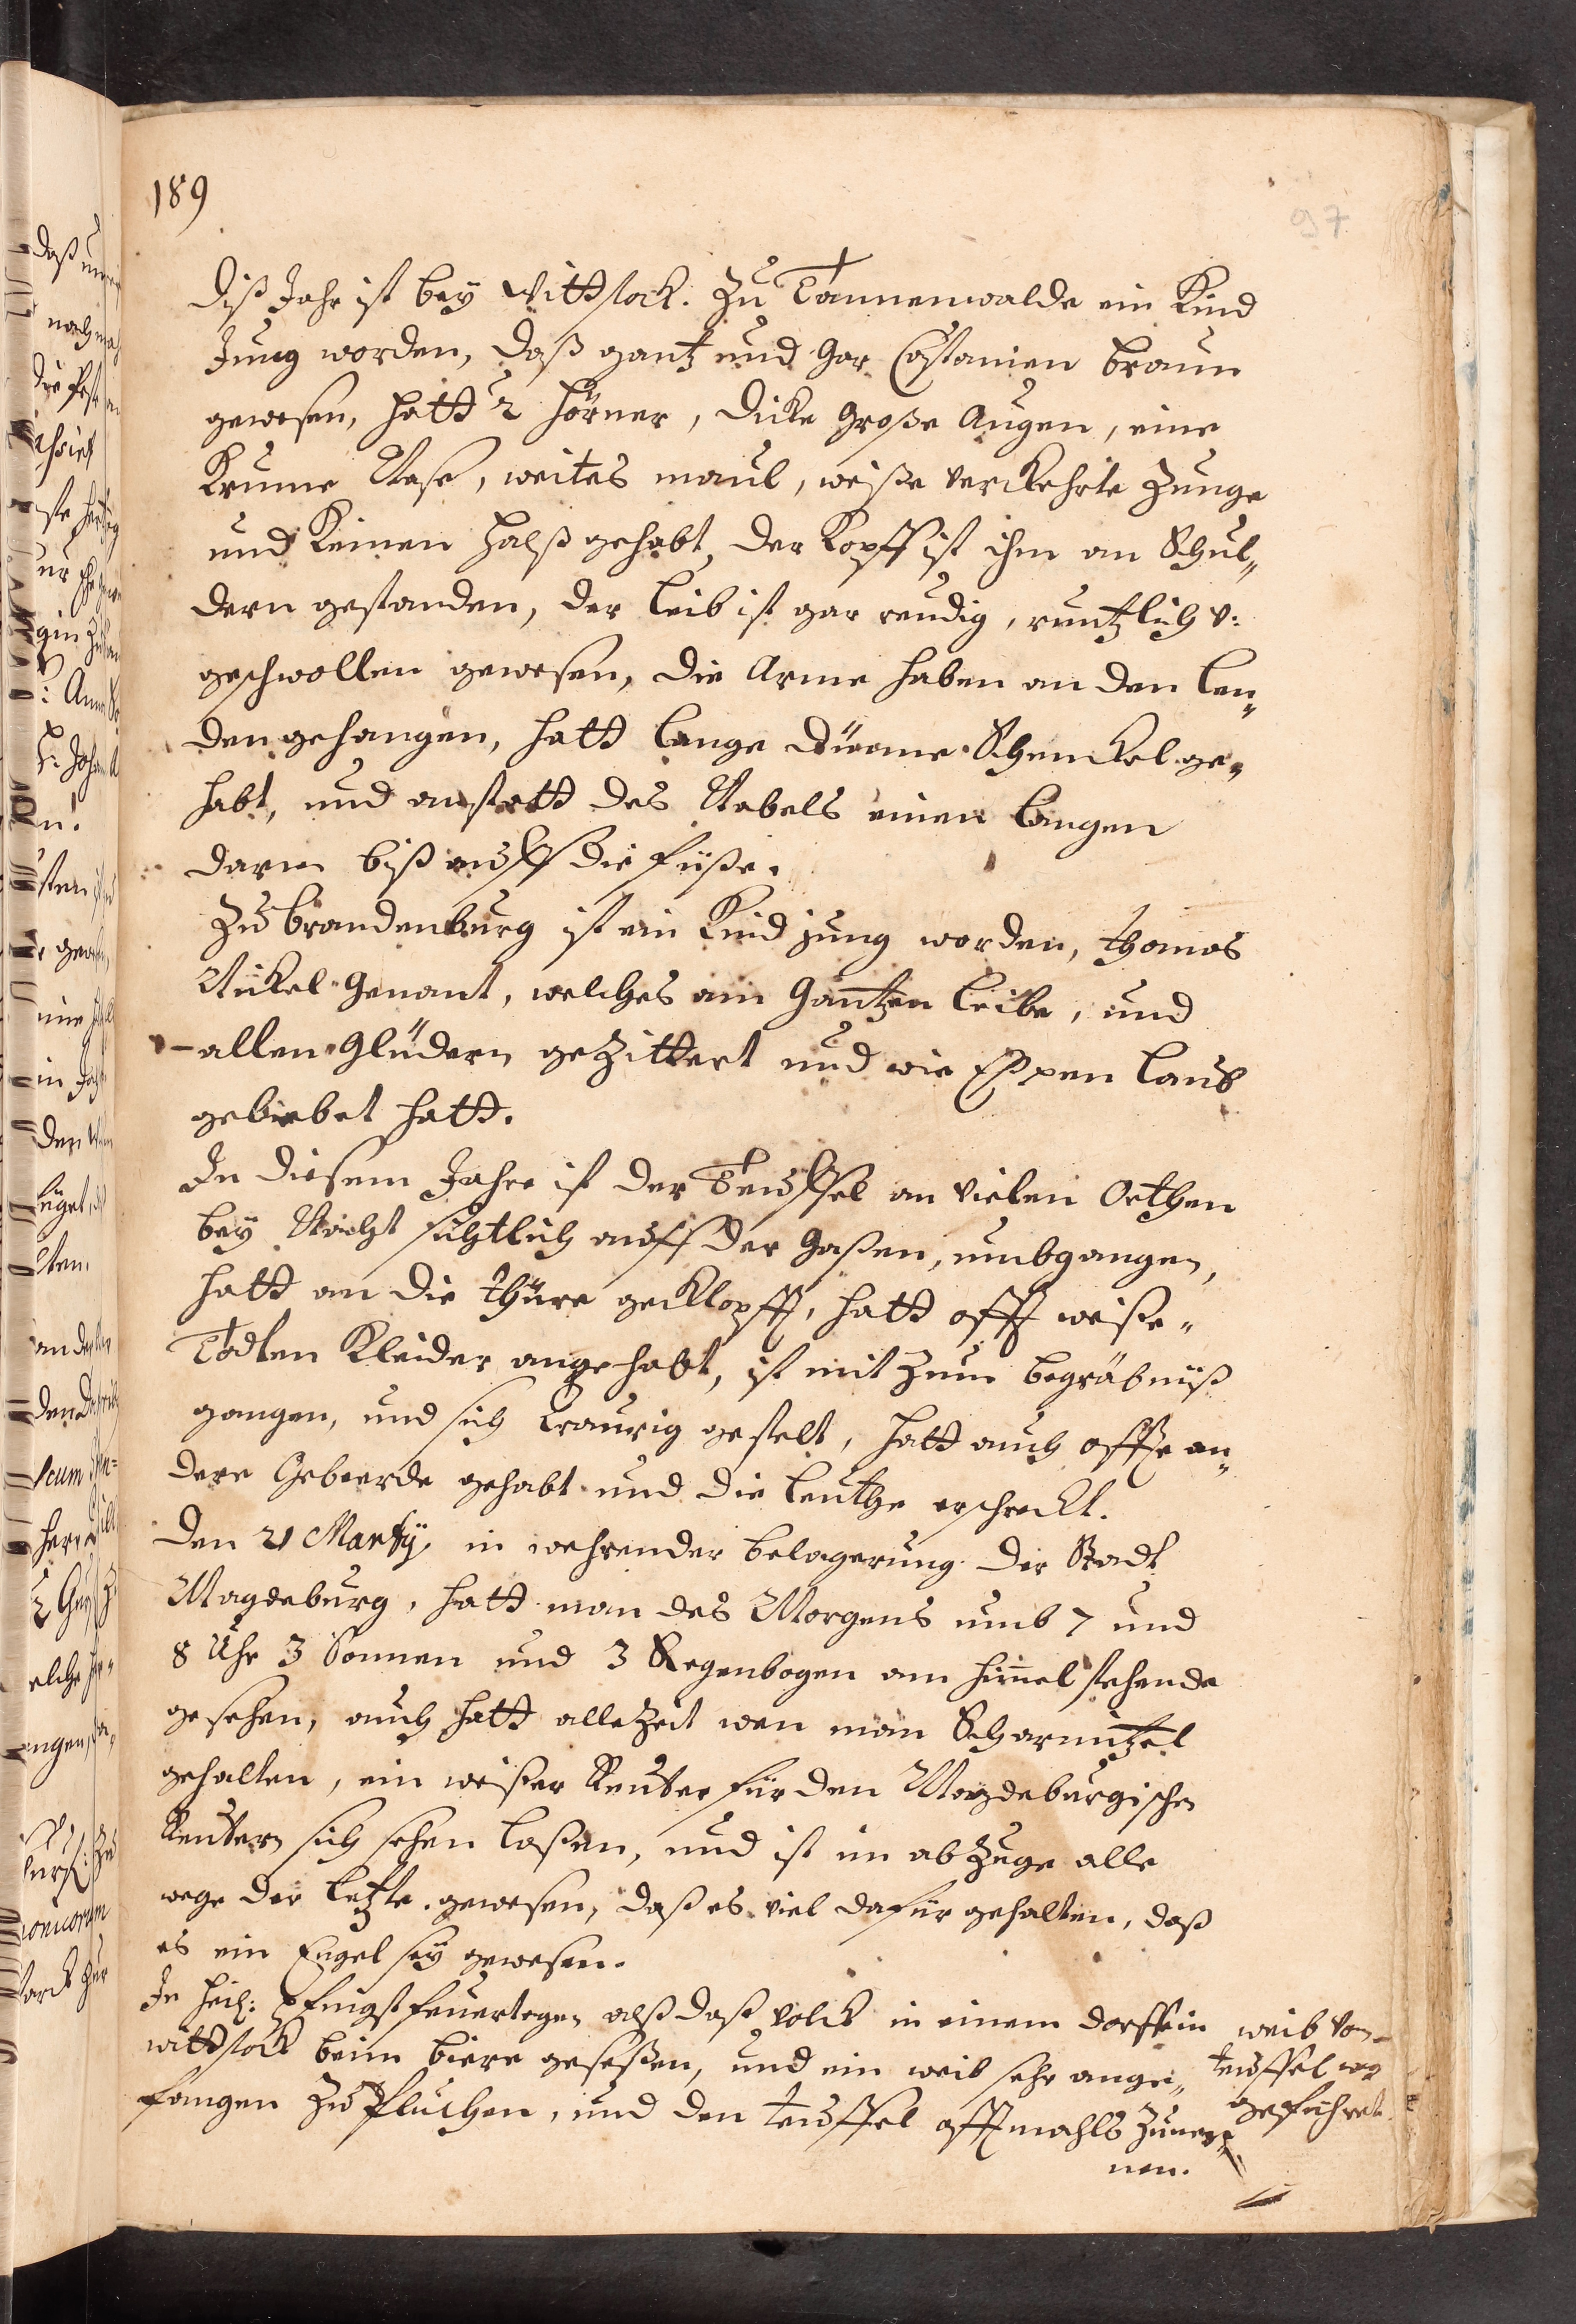 189
97
Diß Jahr ist bey Wittstock. zu Tannenwalde ein Kind
Jung worden, daß gantz und Gar Castanien braun
gewesen, hatt 2 Hörner, dicke Große Augen, eine
Krume Nase, weites maul, weiße verckehrte Zunge
und Keinen Halß gehabt, der Kopff ist ihm an Schul„
dern gestanden, der Leib ist gar reudig, runtzlich v:
geschwollen gewesen, die Arme haben an den Len„
den gehangen, hatt Lange dürre Schenckel ge„
habt, und anstatt des Nabels einen Langen
darm biß auff die füße.
Zu Brandenburg ist ein Kind jung worden, Thomas
Nickel Genant, welches am Gantzen Leibe, und
allen Gliedern gezittert und wie Espen Laub
gebebet hatt.
In diesem Jahre ist der Teuffel an vielen Orthen
bey Nacht sichtlich auff der Gaßen, umbgangen,
hatt an die Thüre geklopfft, hatt offt weiße„
Todten Kleider angehabt, ist mit zum begräbnüß
gangen, und sich Traurig gestelt, hatt auch offte an„
dere Geberde gehabt und die Leuthe erschreckt.
Den 21 Martij in wehrender belagerung der Stadt
Magdeburg, hatt man des Morgens umb 7 und
8 Uhr 3 Sonnen und 3 Regenbogen am Himel stehende
gesehen, auch hatt allezeit wen man Scharmützel
gehalten, ein weißer Reuter für den Magdeburgischen
Reutern sich sehen laßen, und ist im abzuge alle
wege der letzte gewesen, daß es viel dafür gehalten, daß
es ein Engel sey gewesen.
In Heil: Pfingstfeuertagen alß daß volck in einem dorffe in
Wittstock beim biere geseßen, und ein weib sehr ange„
fangen zu fluchen, und den teuffel offtmahls zunen„
nen.
weib von
teuffel weg
geführet.